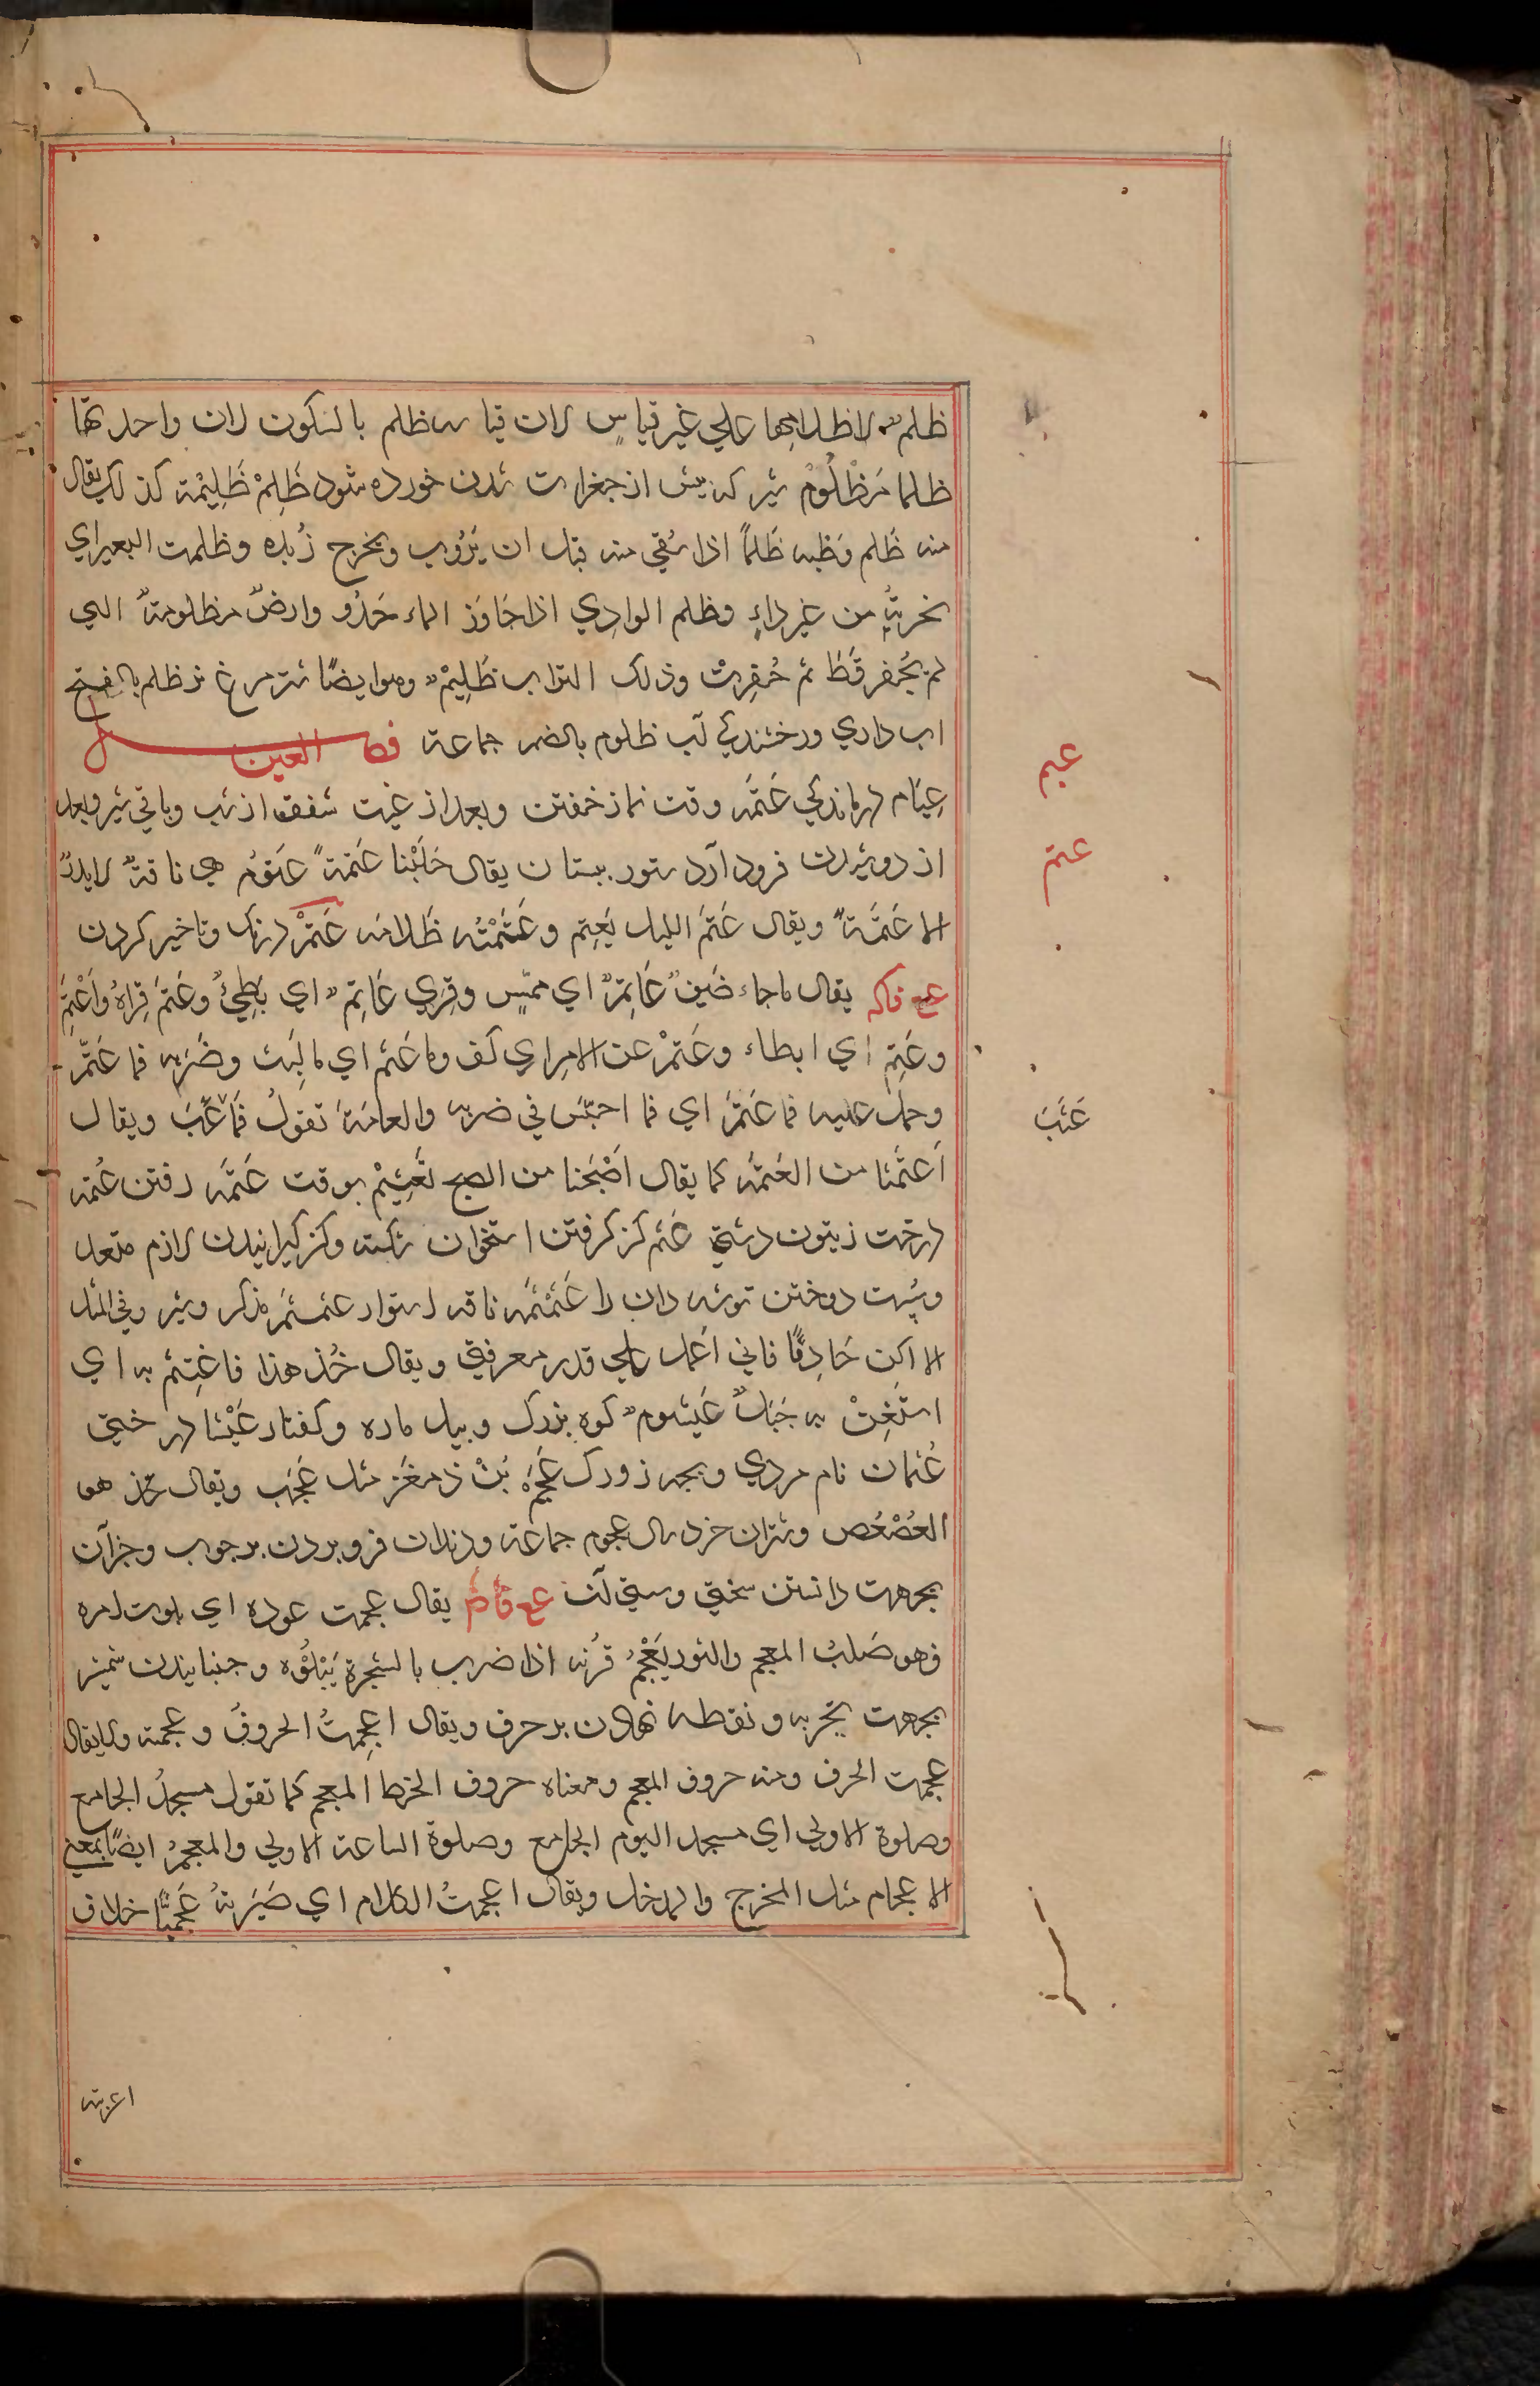 ظلم لاظلامها علي غير قياسٍ لان قياس ظلم بالسكون لان واحدتها
ظلما مَظْلُومُ شير كه پيش از جغرات شدن خورده شود ظَلِمْ ظَلِيْمة كذلك يقال
منه ظَلم وَظبه ظَلماً اذا سُقي منه قبل ان يَرُوب ويخرج زُبده وظلمت البعير اي
نحرتُه من غير داءٍ وظلم الوادِي اذا جَاوَز الماء حَدُّو وارضٌ مظلومةٌ التي
لم يُحفر قَط ثم حُفِرت وذلك التراب ظَلِيْمٌ وهو ايضًا شتر مرغ نر ظلم بالفتح
اب داري ودرخشندكي آب ظلوم بالضم جماعة فصل العين
عِيَام درماندكي عَتَمَه وقت نماز خفتن وبعد از غيبت شفق از شب وباقي شير وبعد
از دوشيدن فرود آرد ستور بپستان يقال حَلَبْنا عَتمةً عَتوُم هي ناقةٌ لا يدرّ
الا عَتَمَةً ويقال عَتَمَ الليل يَعتِم وعَتَمْتُه ظَلامَه عَتْمْ درنك وتاخير كردن
عع فاكه يقال ما جاء ضَيفٌ عَاتِمٌ اي ممّسٍ وقِري عَاتِمٌ اي بَطِيْئٌ وعَتمَ قِراهُ واَعْتَمَ
وعَتِم اي ابطاء وعَتمْ عن الامر اي كف وما عَتم اي ما لَبِث وضَرَبه فما عَتّم
وحمل عليه فما عَتمَ اي فما احبّسَ في ضربه والعامَة تقولُ فَما عَتَّبَ ويقال
اَعتَمْنا من العَتمَه كما يقال اَصْبَحْنا من الصبح تَعْتِيْم بوقت عَتَمَه رفتن عُتمه
درخت زيتون دشتي عَثم كژ كرفتن استخوان شكسته وكژ كيرانيدن لازم متعد
وسُپت دوختن توشه دان را عَثَمْثَمَه ناقه استوار عثمثم مذكر وشير وفي المثل
الا اكن حَاذِقًا فاني اَعْمل علي قدر معرفتي ويقال خُذ هذا فاغتِثم به اي
استَعِنْ به جَبَلٌ عَيثومٌ كوه بزرك وپيل ماده وكفتار عَيْثا درختي
عُثمان نام مردي وبچه زورك عَجَمَه بَنْ ذمغز مثل عَجَب ويقال هو
العُصْعُص وشتران خرد سال عجوم جماعة ودندان فرو بردن بر چوب وجز آن
بجهت دانستن سختي وسستي آن عع فاض يقال عجمت عوده اي بلوت امره
فهو صَلبُ المعجم والثور يَعْجُم قَرْنه اذا ضرب بالشجرة يَبْلُوُه وجنبانيدن شمشير
بجهت تجربه ونقطه نهادن بر حرف ويقال اعجمتُ الحروفَ وعجمته ولا يقال
عجمت الحرف ومنه حروف المعجم ومعناه حروف الخط المعجم كما تقول مسجدُ الجامع
وصلوة الاولي اي مسجد اليوم الجامع وصلوة الساعة الاولي والمعجمُ ايضًا بمعني
الاعجام مثل المخرج والمدخل ويقال اعجمتُ الكلام اي صَيَّرته عَجَميًّا خلاف
عيم
عتم
عَتَبَ
اعربته